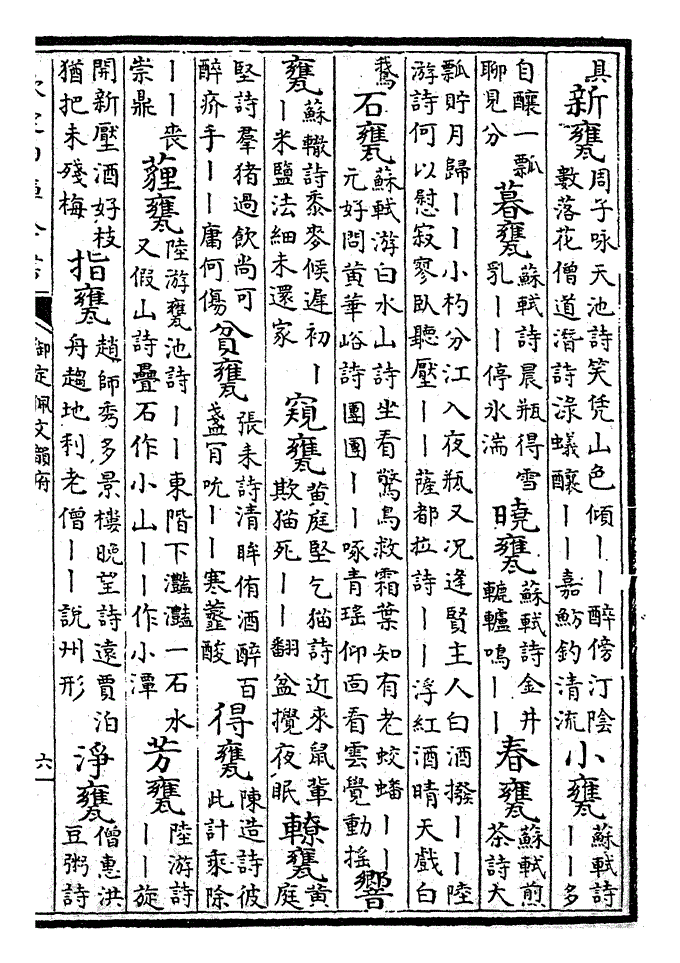 具新甕周子咏天池詩笑凭山色傾||醉傍汀陰數落花僧道潛詩淥蟻釀||嘉魴釣清流小甕蘇軾詩||多
自釀一瓢聊見分暮甕蘇軾詩晨瓶得雪乳||停氷湍曉甕蘇軾詩金井轆轤鳴||春甕蘇軾煎茶詩大
瓢貯月歸||小杓分江入夜瓶又况逢賢主人白酒撥||陸游詩何以慰寂寥臥聽壓||薩都拉詩||浮紅酒晴天戲白
鵞石甕蘇軾游白水山詩坐看驚鳥救霜葉知有老蛟蟠||元好問黃華峪詩團團||啄青瑤仰面看雲覺動搖響
甕蘇轍詩黍麥候遲初||米鹽法細未還家窺甕黃庭堅乞猫詩近來鼠輩欺猫死||翻盆攪夜眠轑甕黃庭
堅詩羣猪過飲尚可醉疥手||庸何傷貧甕張耒詩清眸侑酒醉百盞肎吮||寒虀酸得甕陳造詩彼此計乘除
||喪崇鼎薶甕陸游甕池詩||東階下灩灩一石水又假山詩疊石作小山||作小潭芳甕陸游詩||旋
開新壓酒好枝猶把未殘梅指甕趙師秀多景樓晚望詩遠賈泊舟趨地利老僧||說州形淨甕僧惠洪豆粥詩
御定佩文韻府
六